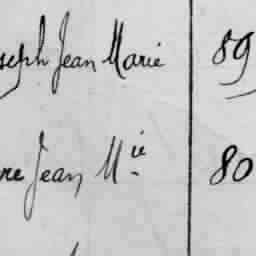 seph Jean Marie 89
re Jean M.ie 80